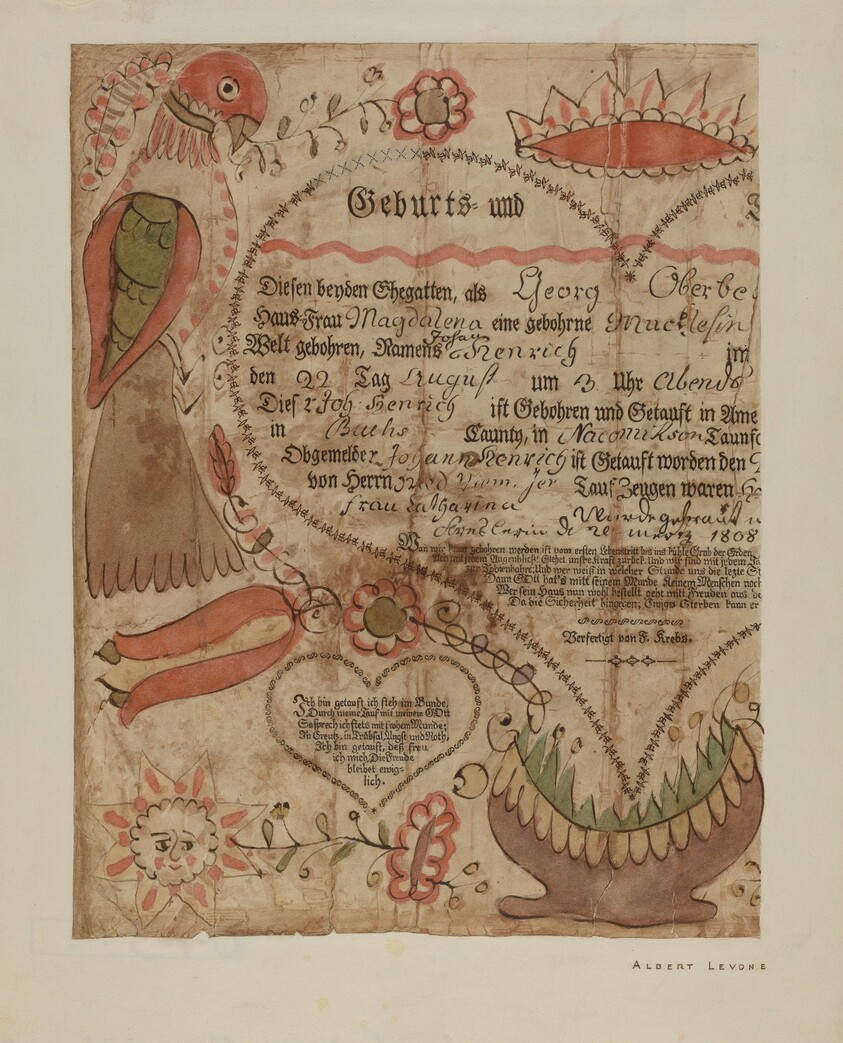 Geburts- und
Diesen beyden Ehegatten, als Georg Oberbe
Haus-Frau Magdalena eine gebohrne Mucklesin
Welt gebohren, Namens Johan Henrich im
den 22 Tag August um 3 Uhr Abends
Dieser Joh: Henrich ist Gebohren und Getauft in Ame
in Buchs Caunty, in Nacomikson Taunsc
Obgemelder Johann Henrich ist Getauft worden den
von Herrn Tauf Zeugen waren He
frau Catharina Wurde getrauft u
d 28 1808
Wan wir kaum gebohren werden ist vom ersten Lebenstritt bis ins kühle Grab der Erden
Augenblick! Gehet unsre Kraft zurück. Und wir sind mit jedem Ja
Todtenbahre, Und wer weiß in welcher Stunde uns die lezte St
Dann GOtt hat's mitt seinem Munde Keinem Menschen noch
Wer sein Haus nun wohl bestellt geht mitt Freuden aus de
Da die Sicherheit hingegen; Ewigs Sterben kann er
Verfertigt von F. Krebs.
Ich bin getauft, ich steh im Bunde,
Durch meine Tauf mit meinem GOtt
So sprech ich stets mit frohem Munde;
In Creutz, in Trübsal, Angst und Noth,
Ich bin getauft, deß freu
ich mich, Die Freude
bleibet ewig-
lich.
ALBERT LEVONE